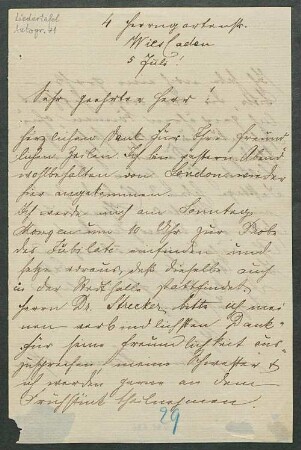 Liedertafel
Autogr. 71
4 Herrngartenstr.
Wiesbaden
5 Juli!
Sehr geehrter Herr!
herzlichen Dank für Ihre freund-
lichen Zeilen Ich bin gestern Abend
wohlbehalten von London wieder
hier angekommen.
Ich werde mich am Sonntag
Morgen um 10 Uhr zur Probe
des Jubilate einfinden und
setze voraus, daß dieselbe auch
in der Stadthalle stattfindet.
Herrn Dr. Strecker bitte ich mei-
nen verbindlichsten Dank
für seine Freundlichkeit aus-
zusprechen meine Schwester &
ich werden gerne an dem
Frühstück theilnehmen.
29